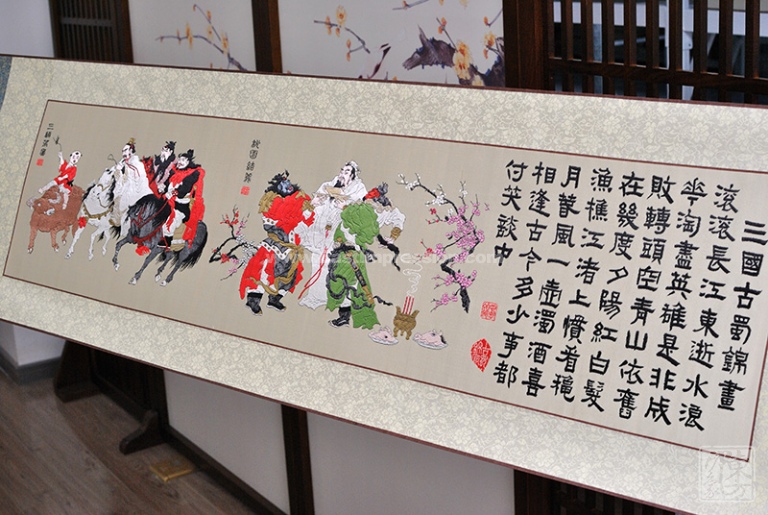 三國古蜀錦畫
滾滾長江東逝水浪
花淘盡英雄是非成
敗轉頭空青山依舊
在幾度夕陽紅白髮
漁樵江渚上慣看穐
月萅風一壺濁酒喜
相逢古今多少事都
付笑談中
桃園結義
三顧茅廬